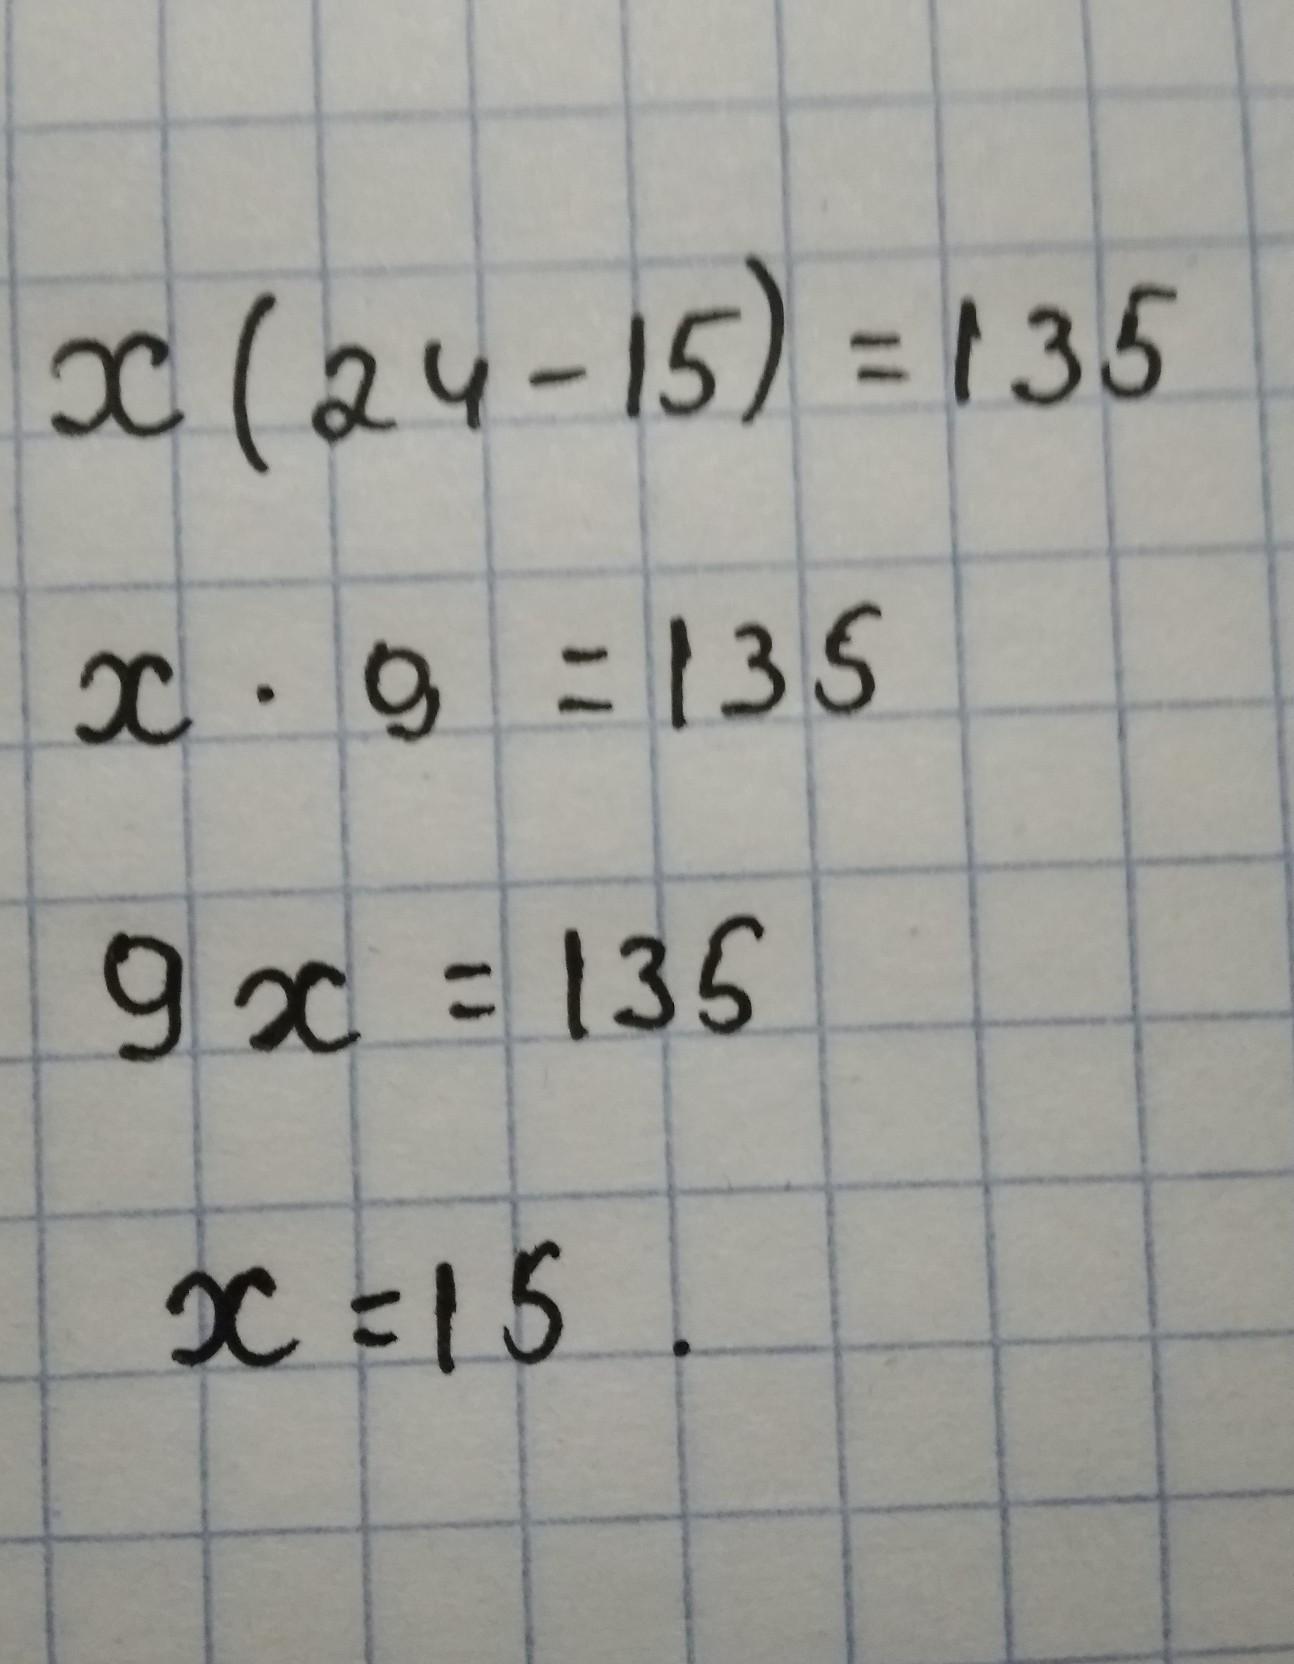 x(24-15)=135
x · 9 =135
9x =135
x =15 .